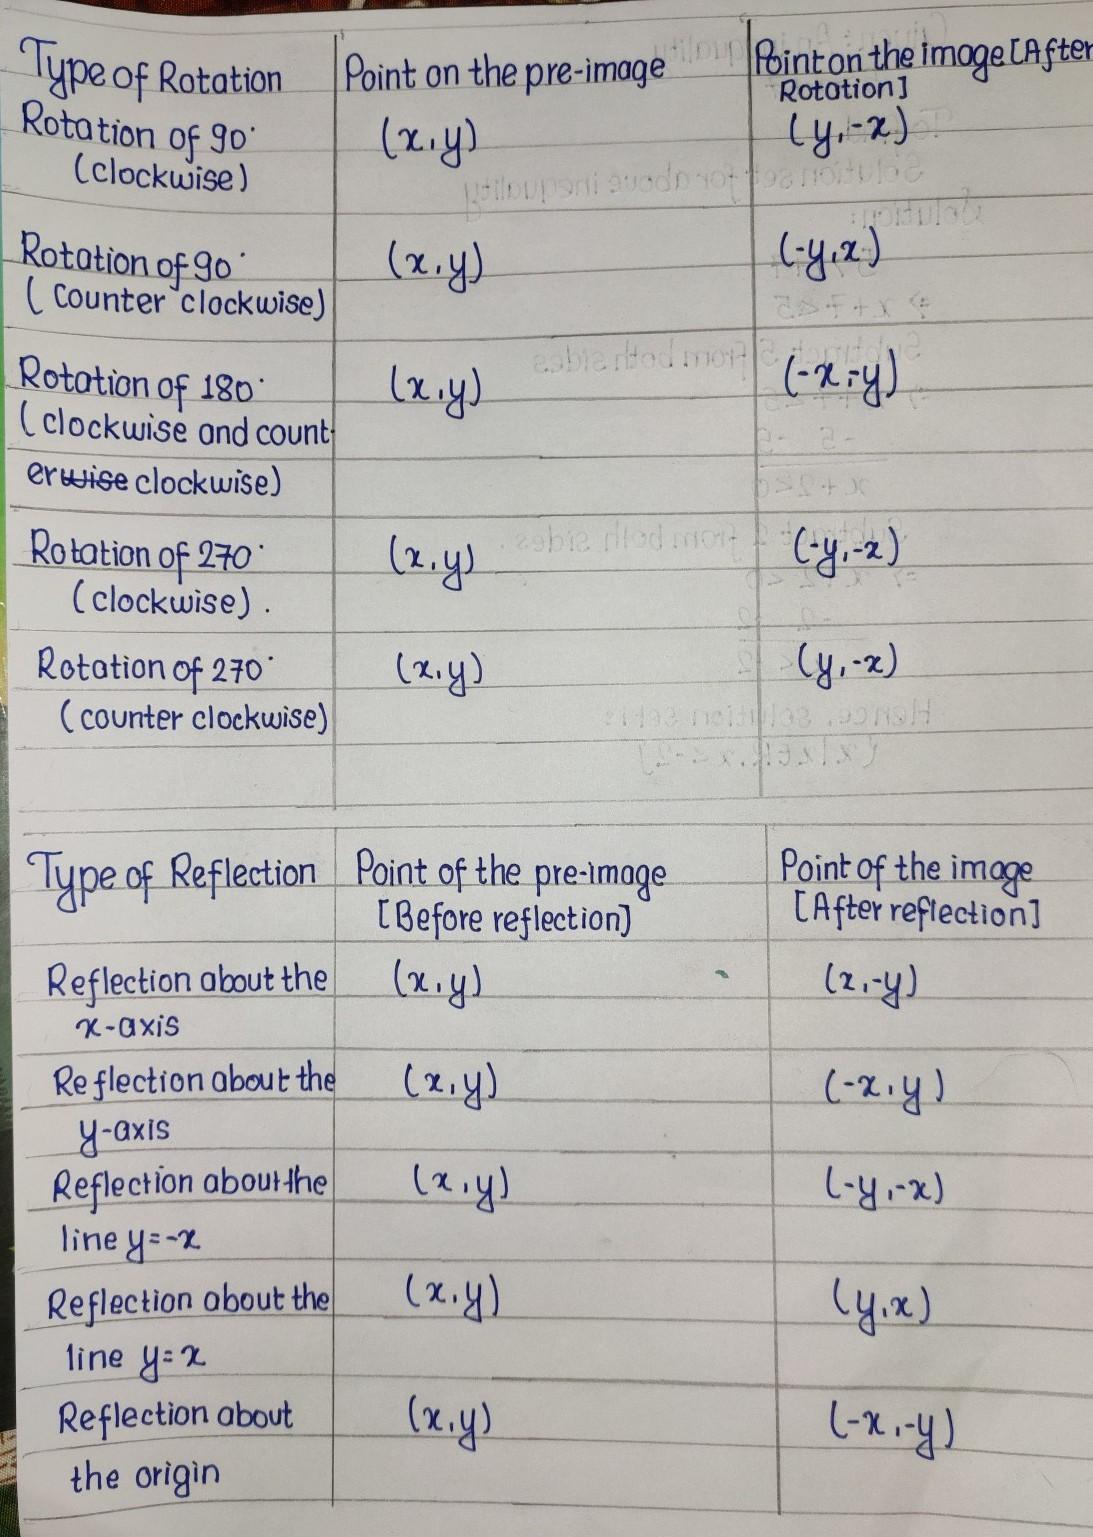 Type of Rotation Point on the pre-image Point on the image [After Rotation]
Rotation of 90° (x,y) (y,-x)
(clockwise)
Rotation of 90° (x,y) (-y,x)
( Counter clockwise)
Rotation of 180° (x,y) (-x,-y)
(clockwise and count-
erwise clockwise)
Rotation of 270° (x,y) (-y,-x)
(clockwise).
Rotation of 270° (x,y) (y,-x)
(counter clockwise)
Type of Reflection Point of the pre-image Point of the image
[Before reflection] [After reflection]
Reflection about the (x,y) (x,-y)
x-axis
Reflection about the (x,y) (-x,y)
y-axis
Reflection about the (x,y) (-y,-x)
line y=-x
Reflection about the (x,y) (y,x)
line y=x
Reflection about (x,y) (-x,-y)
the origin